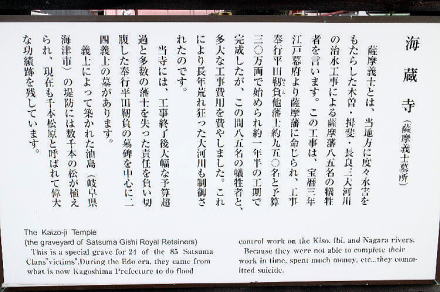 海蔵寺(薩摩義士墓所)
薩摩義士とは、当地方に度々水害を
もたらした木曽・揖斐・長良三大河川
の治水工事による薩摩藩八五名の犠牲
者を言います。この工事は、宝暦三年
江戸幕府より薩摩藩に命じられ、工事
奉行平田靭負他藩士約九五〇名と予算
三〇万両で始められ約一年半の工期で
完成したが、この間八五名の犠牲者と、
多大な工事費用を費やしました。これ
により長年荒れ狂った大河川も制御さ
れたのです。
当寺には、工事終了後大幅な予算超
過と多数の藩士を失った責任を負い切
腹した奉行平田靭負の墓碑を中心に二
四義士の墓があります。
義士によって築かれた油島(岐阜県
海津市)の堤防には数千本の松が植え
られ、現在も千本松原と呼ばれて偉大
な功績跡を残しています。
The Kaizo-ji Temple
(the graveyard of Satsuma Gishi Royal Retainers)
This is a special grave for 24 of the 85 Satsuma
Clans"victims".During the Edo era, they came from
what is now Kagoshima Prefecture to do flood
control work on the Kiso, Ibi, and Nagara rivers.
Because they were not able to complete their
work in time, spent much money, etc...they commi-
tted suicide.